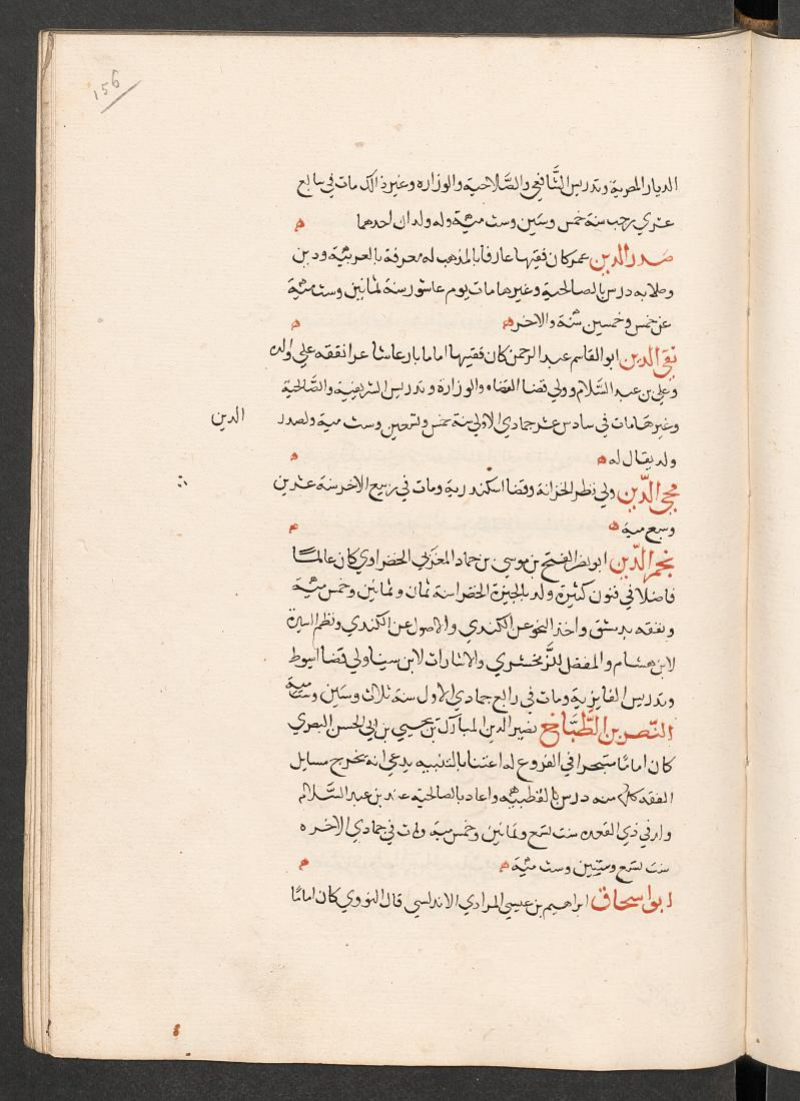 156
الديار المصرية وتدريس الشافعي والصلاحية والوزاره وغير ذالك مات في سابع
عشري رجب سنة خمس وستين وست مئية وله ولدان احدهما
صدر الدين عمر كان فقيها عارفا بالمذهب له معرفة بالعربية ودين
وصلابه درس بالصالحية وغيرها مات يوم عاشور سنة ثمانين وست مئية
عن خمس وخمسين سنة والاخر
تقي الدين ابو القاسم عبد الرحمن كان فقيها اماما بارعا شاعرا تفقه علي والده
وعلي بن عبد السلام وولي قضا القضاه والوزارة وتدريس الشريفية والصالحية
وغيرهامات في سادس عشر جمادي الاولي سنة خمس وتسعين وست مية ولصدر الدين
ولد يقال له
محي الدين ولي نظر الخزانة وقضا اسكندرية ومات في ربيع الاخر سنة عشرين
وسبع مية
نجم الدين ابو نصر الفتح بن موسي بن حماد المغربي الخضراوي كان عالما
فاضلا في فنون كثيرة ولد بالجزيرة الخضرا سنة ثمان وثمانين وخمس مئية
وتفقه بدمشق واخذ النحو عن الكندي والاصول عن الكندي ونظم السيرة
لابن هشام والمفصل للزمخشري والاشارات لابن سينا ولي قضا اسيوط
وتدريس الفايزية ومات في رابع جمادي الاول سنة ثلاث وستين وست مية
النصر بن الطباخ نصير الدين المبارك بن يحيي بن ابي الحسن البصري
كان اماما متبحرا في الفروع له اعتنا بالتنبيه يدعي انه يخرج مسايل
الفقه كلها منه درس بالقطبية واعاد بالصالحية عند بن عبد السلام
ولد في ذي القعده سنت تسع وثمانين وخمس مية ومات في جمادي الاخره
سنت تسع وستين وست مئية
ابو اسحاق ابراهيم بن عيسي المرادي الاندلسي قال النووي كان اماما